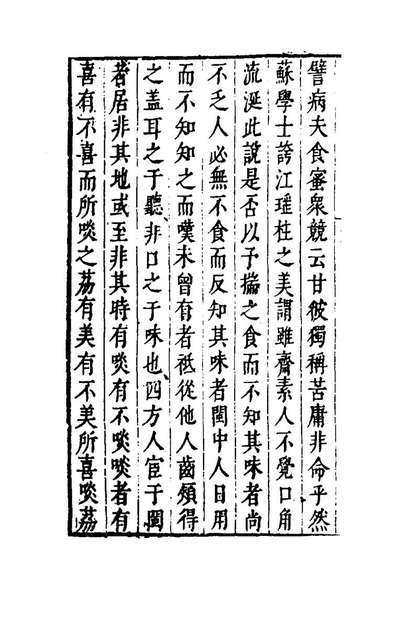 譬病夫食蜜衆競云甘彼獨稱苦庸非命乎然
蘇學士誇江瑶柱之美謂雖齋素人不覺口角
流涎此說是否以予揣之食而不知其味者尚
不乏人必無不食而反知其味者閩中人日用
而不知知之而嘆未曾有者祗從他人齒頰得
之盖耳之于聽非口之于味也四方人宦于閩
者居非其地或至非其時有啖有不啖啖者有
喜有不喜而所啖之荔有美有不美所喜啖荔